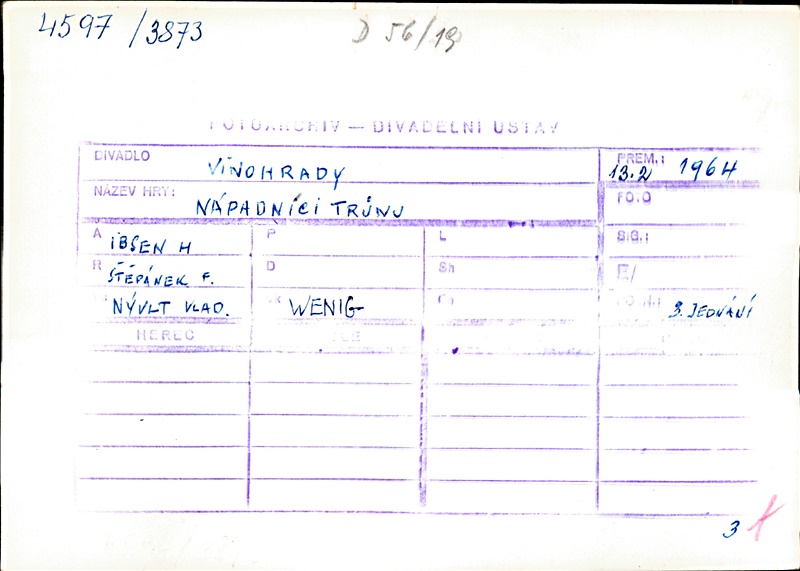 4597/3873
D 56/19
FOTOARCHIV — DIVADELNÍ ÚSTAV
DIVADLO VINOHRADY PREM.: 13.2 1964
NÁZEV HRY: NÁPADNÍCI TRŮNU FOTO
A IBSEN H P L SIG.:
R ŠTĚPÁNEK F. D Sh E/
NÝVLT VLAD. WENIG 3. JEDNÁNÍ
HEREC
3